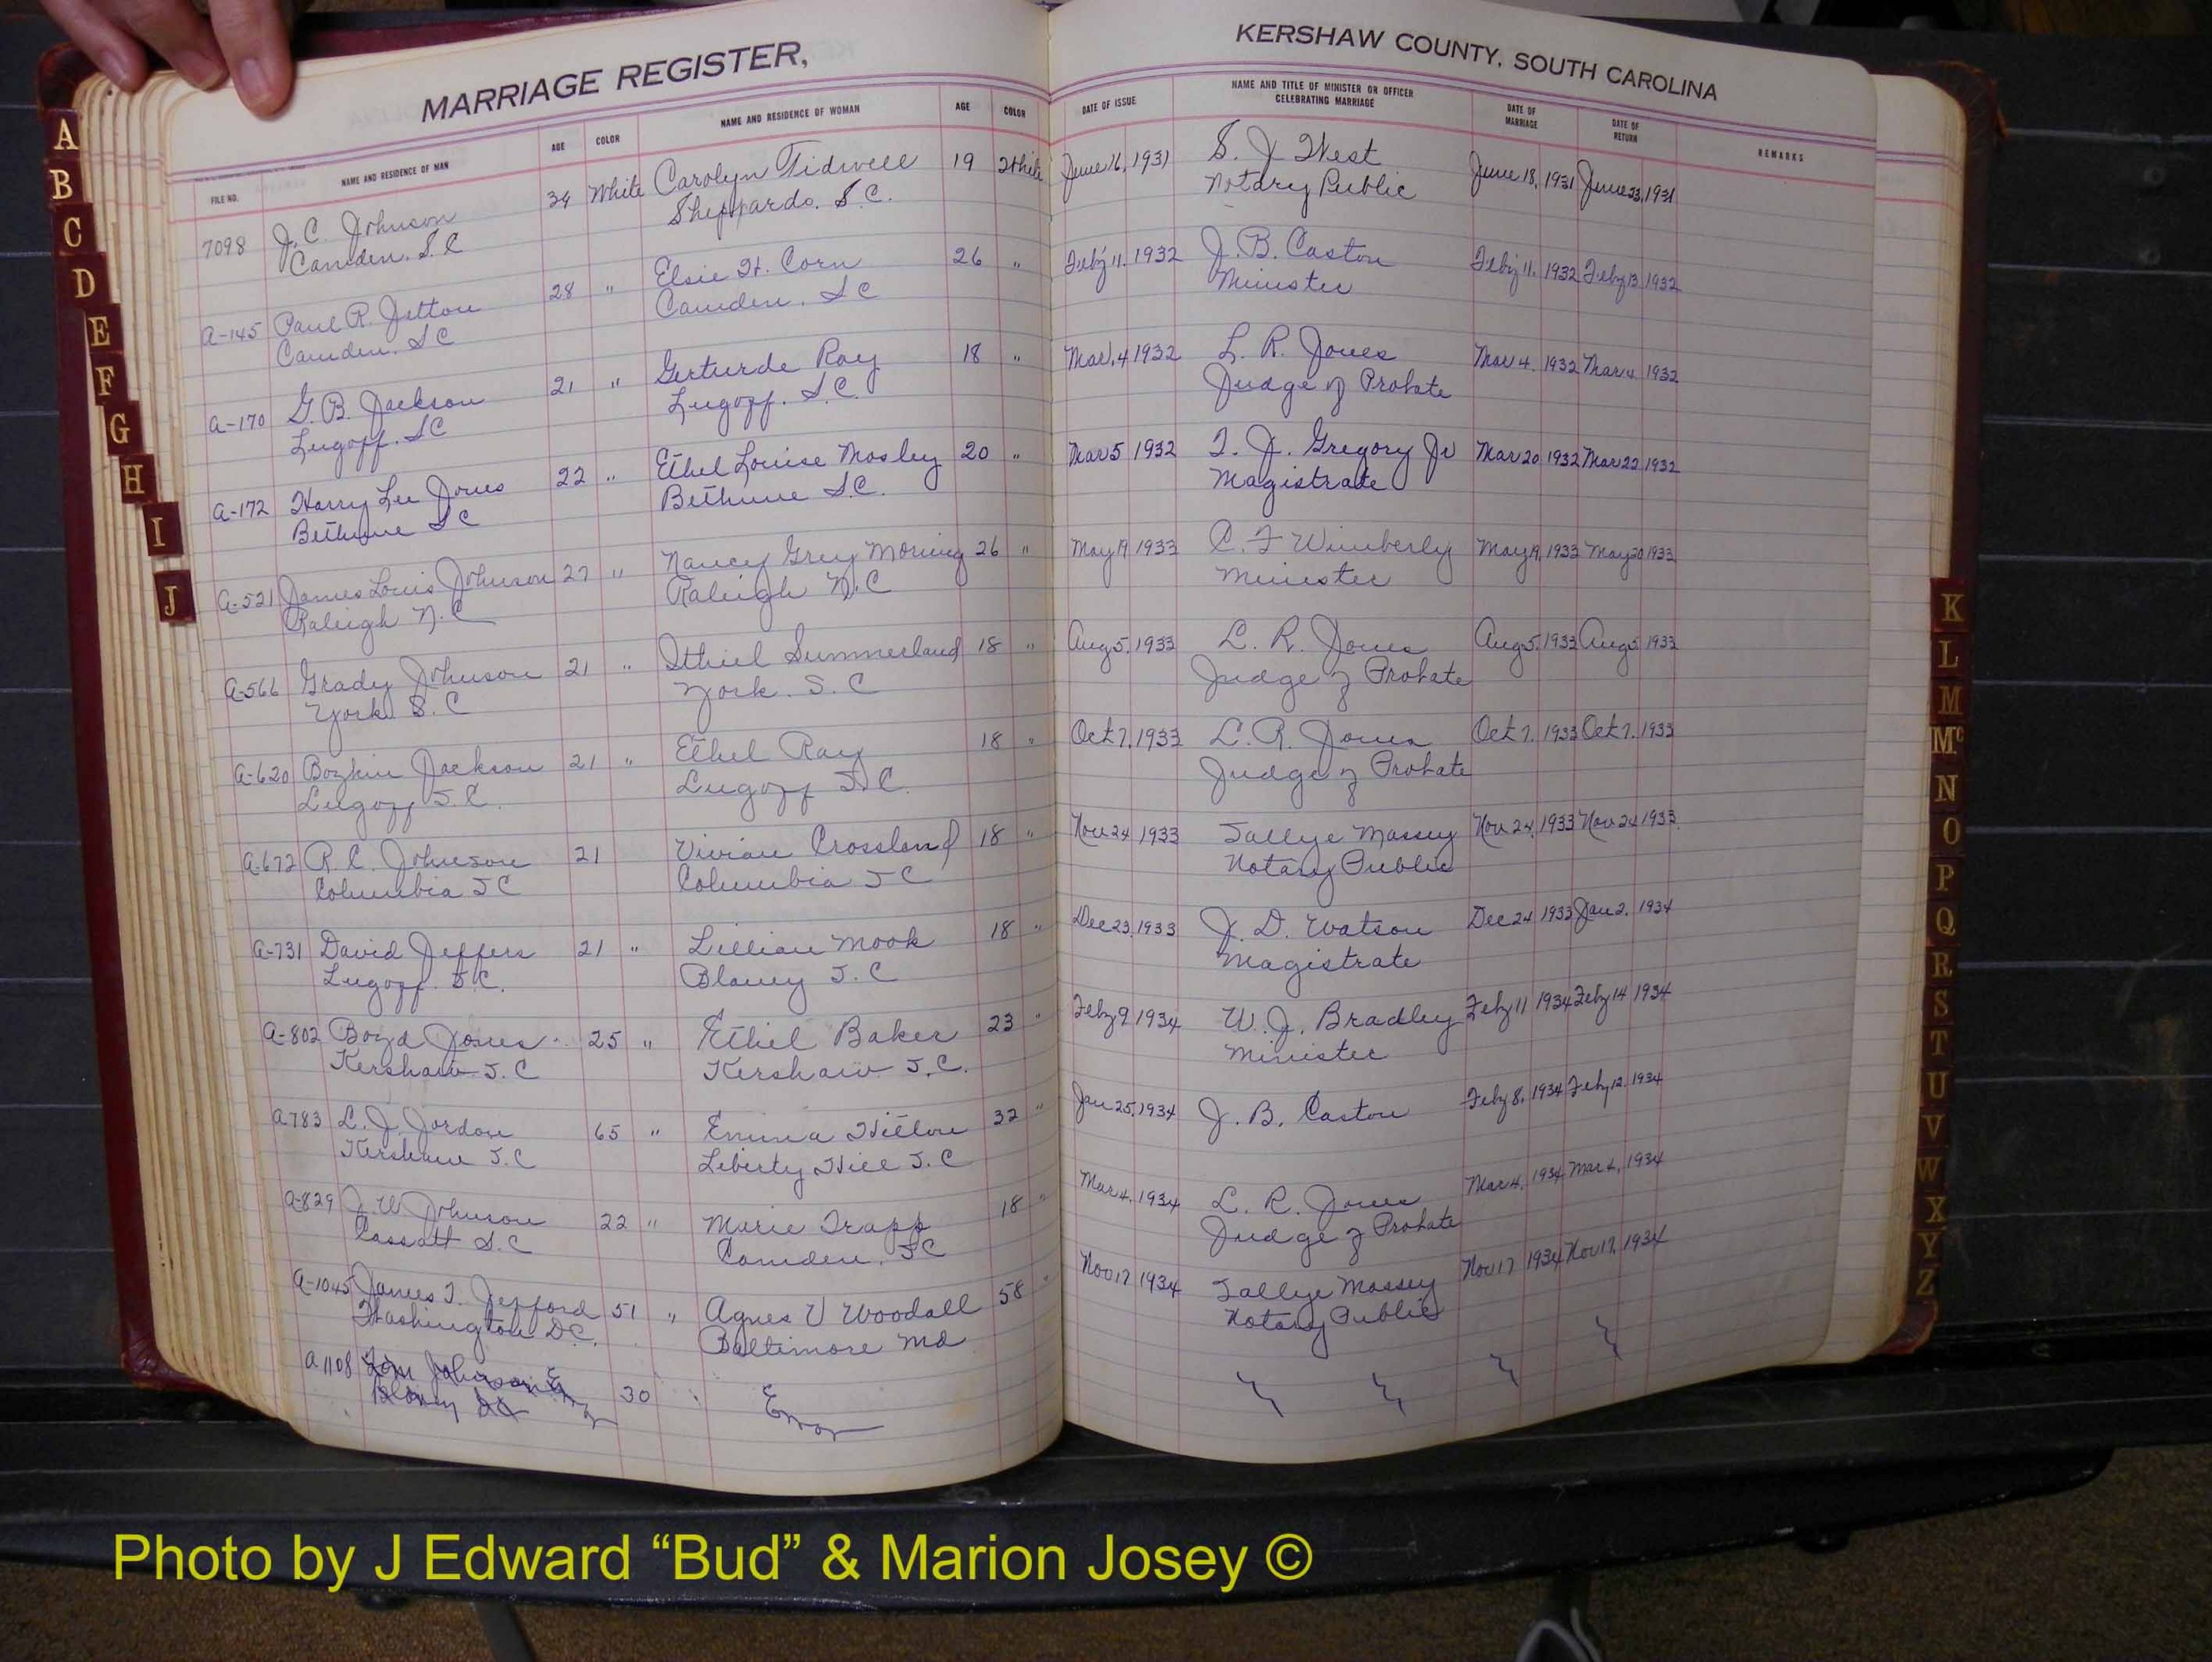 MARRIAGE REGISTER,
KERSHAW COUNTY, SOUTH CAROLINA
FILE NO. NAME AND RESIDENCE OF MAN AGE COLOR NAME AND RESIDENCE OF WOMAN AGE COLOR DATE OF ISSUE NAME AND TITLE OF MINISTER OR OFFICER CELEBRATING MARRIAGE DATE OF MARRIAGE DATE OF RETURN REMARKS
7098 J. C. Johnson 34 White Carolyn Tidwell 19 White June 16, 1931 S. J West June 18, 1931 June 23, 1931
Camden, S.C Sheppards. S.C. Notary Public
A-145 Paul R. Jetton 28 " Elsie H. Corn 26 " Feby 11. 1932 J. B. Caston Feby 11. 1932 Feby 13 1932
Camden. SC Camden. SC Minister
A-170 G. B. Jackson 21 " Gerturde Ray 18 " Mar. 4 1932 L. R. Jones Mar 4. 1932 Mar 4 1932
Lugoff. SC Lugoff. S.C. Judge of Probate
A-172 Harry Lee Jones 22 " Ethel Louise Mosley 20 " Mar 5 1932 T. J. Gregory Jr Mar 20 1932 Mar 22 1932
Bethune SC Bethune S.C. Magistrate
A-521 James Louis Johnson 27 " Nancy Grey Moring 26 " May 19 1933 C. F Wimberly May 19, 1933 May 20 1933
Raleigh N.C Raleigh N.C Minister
A-566 Grady Johnson 21 " Ethiel Summerland 18 " Aug 5, 1933 L. R. Jones Aug 5, 1933 Aug 5 1933
York S.C York. S.C Judge of Probate
A-620 Boykin Jackson 21 " Ethel Ray 18 " Oct 7, 1933 L. R. Jones Oct 7. 1933 Oct 7. 1933
Lugoff S.C. Lugoff S.C. Judge of Probate
A-672 R. C. Johnson 21 Vivian Crossland 18 " Nov 24 1933 Sallye Massey Nov 24, 1933 Nov 24 1933
Columbia SC Columbia SC Notary Public
A-731 David Jeffers 21 " Lillian Mook 18 " Dec 23, 1933 J. D. Watson Dec 24 1933 Jan 2, 1934
Lugoff. S.C. Blaney S.C Magistrate
A-802 Boyd Jones 25 " Ethel Baker 23 " Feby 9 1934 W. J. Bradley Feby 11 1934 Feby 14 1934
Kershaw S.C Kershaw S.C. Minister
A783 L. J. Jordon 65 " Emma Hilton 32 " Jan 25, 1934 J. B. Caston Feby 8, 1934 Feby 12. 1934
Kershaw S.C Liberty Hill S.C
A-829 J. W. Johnson 22 " Marie Trapp 18 " Mar 4. 1934 L. R. Jones Mar 4, 1934 Mar 4, 1934
Cassatt S.C Camden, SC Judge of Probate
A-1045 James T. Jefford 51 " Agnes V Woodall 58 " Nov 17 1934 Sallye Massey Nov 17 1934 Nov 17, 1934
Washington DC. Baltimore Md Notary Public
A1108 Tom Johnson Error 30 " Error
Blaney SC
A
B
C
D
E
F
G
H
I
J
K
L
M
Mc
N
O
P
Q
R
S
T
U
V
W
X
Y
Z
Photo by J Edward “Bud” & Marion Josey ©